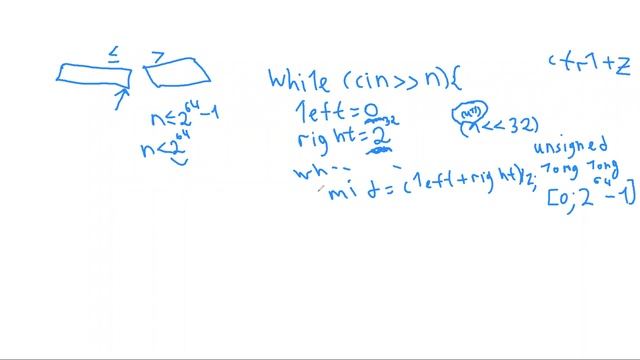 ≤ >
n≤2^64-1
n<2^64
while (cin>>n){
left=0
right=2^32
wh--
mid=(left+right)/2;
ctrl+z
(1<<32)
unsigned
long long
[0;2^64-1]